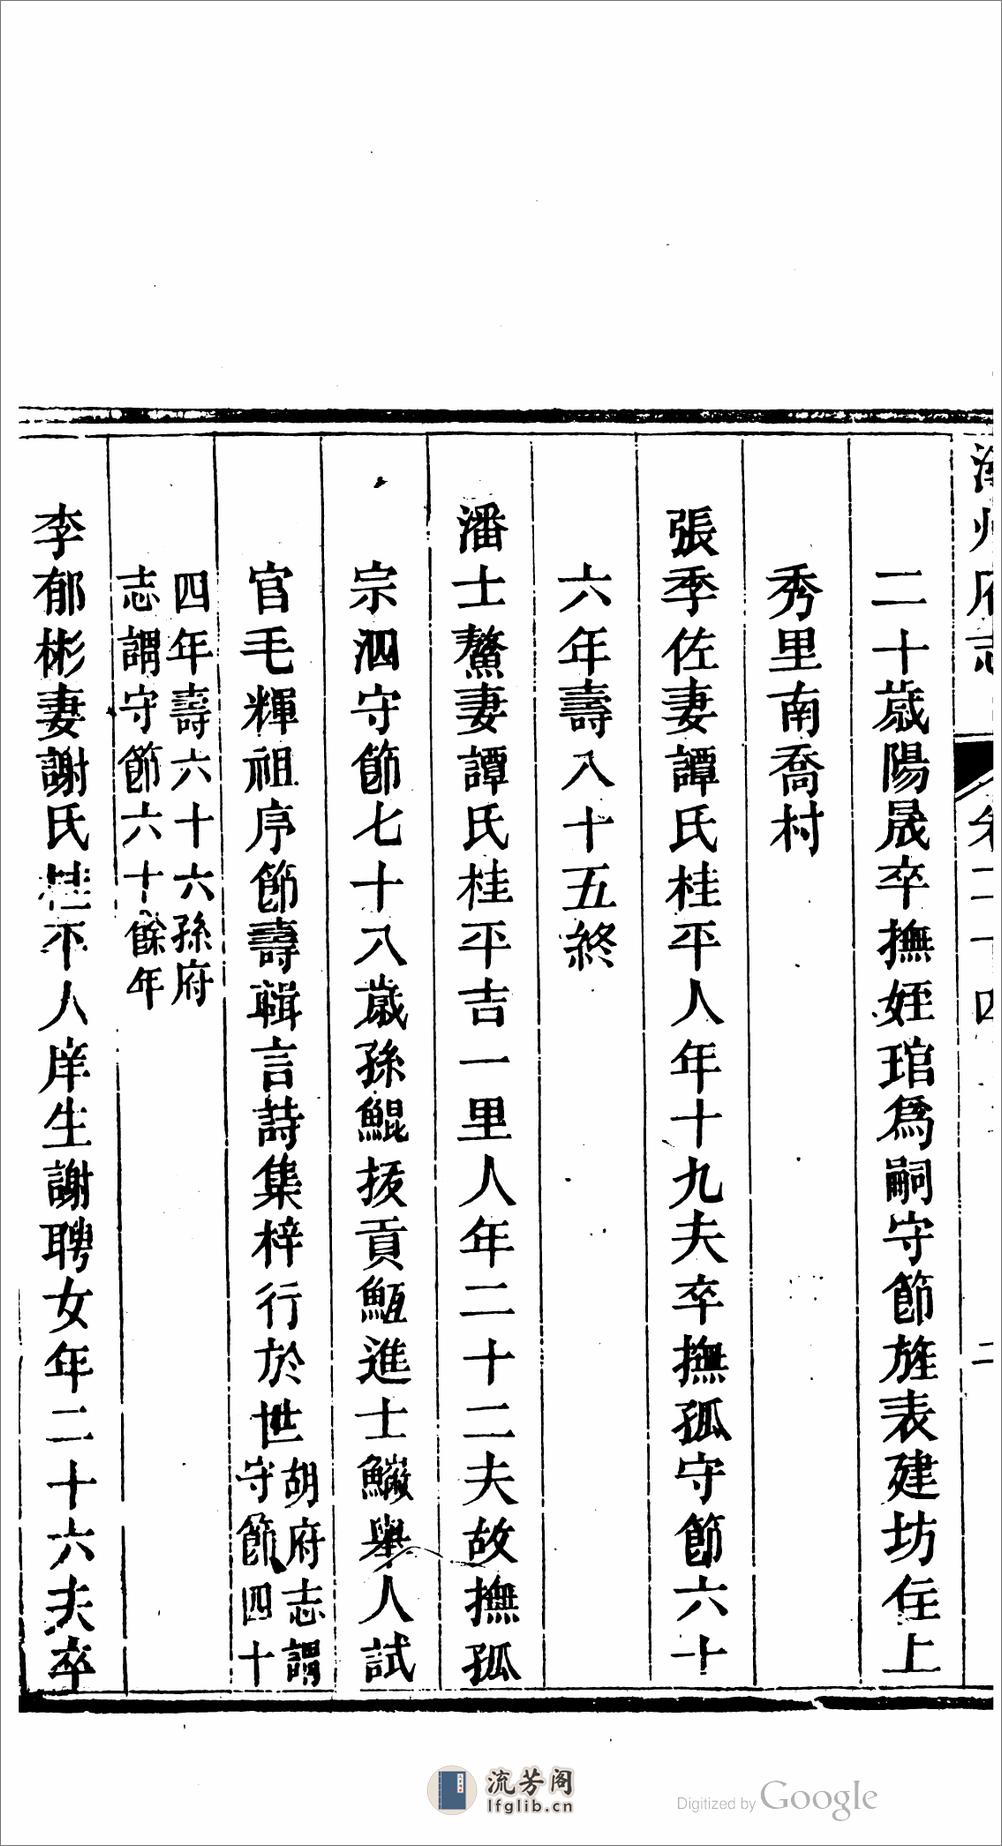 州府志
卷二十四
二十歲陽晟卒撫姪琯爲嗣守節旌表建坊住上
秀里南喬村
張季佐妻譚氏桂平人年十九夫卒撫孤守節六十
六年壽八十五終
潘士鰲妻譚氏桂平吉一里人年二十二夫故撫孤
宗泗守節七十八歲孫鯤拔貢䱭進士鱥舉人試
官毛輝祖序節壽輯言詩集梓行於世胡府志謂
守節四十
四年壽六十六孫府
志謂守節六十餘年
李郁彬妻謝氏桂平人庠生謝聘女年二十六夫卒
流芳阁
lfglib.cn
Digitized by Google